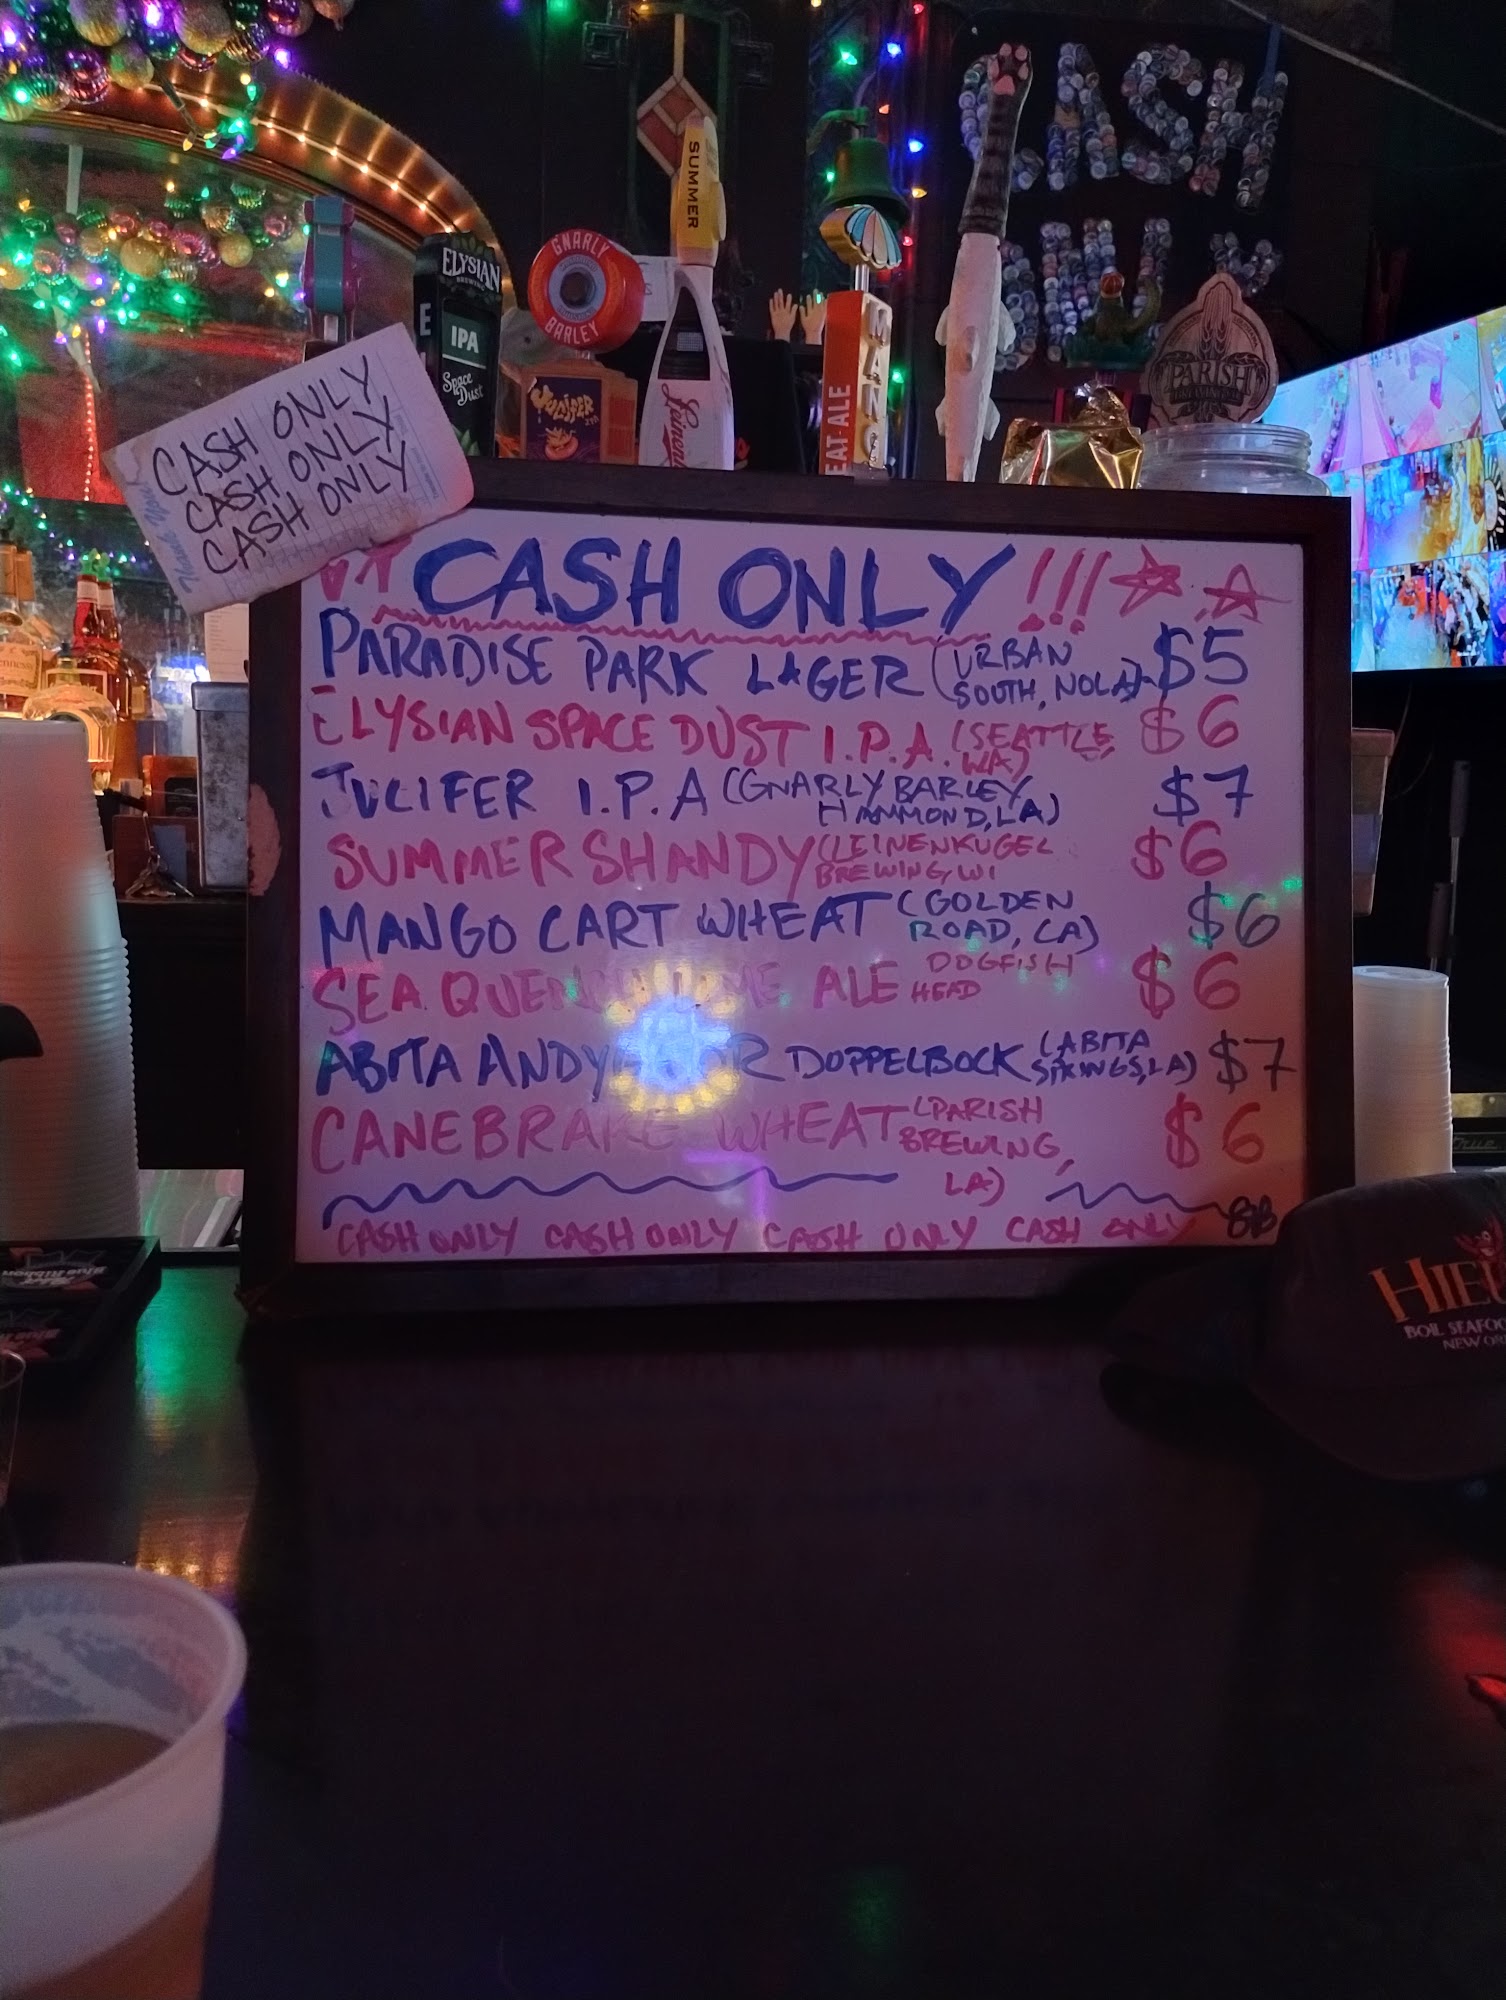 CASH
ONLY
SUMMER
ELYSIAN
BREWING
IPA
Space
Dust
GNARLY
BARLEY
JUCIFER
IPA
Leinen
MANG
EAT·ALE
PARISH
BREWING CO
CASH ONLY,
CASH ONLY,
CASH ONLY
Thank You
CASH ONLY!!!
PARADISE PARK LAGER (URBAN SOUTH, NOLA) $5
ELYSIAN SPACE DUST I.P.A. (SEATTLE, WA) $6
JUCIFER I.P.A (GNARLY BARLEY, HAMMOND, LA) $7
SUMMER SHANDY (LEINENKUGEL BREWING, WI $6
MANGO CART WHEAT (GOLDEN ROAD, CA) $6
SEA QUENCH LIME ALE DOGFISH HEAD $6
ABITA ANDYGATOR DOPPELBOCK (ABITA SPRINGS, LA) $7
CANEBRAKE WHEAT (PARISH BREWING, LA) $6
CASH ONLY CASH ONLY CASH ONLY CASH ONLY
HIEU
BOIL SEAFOO
NEW OR